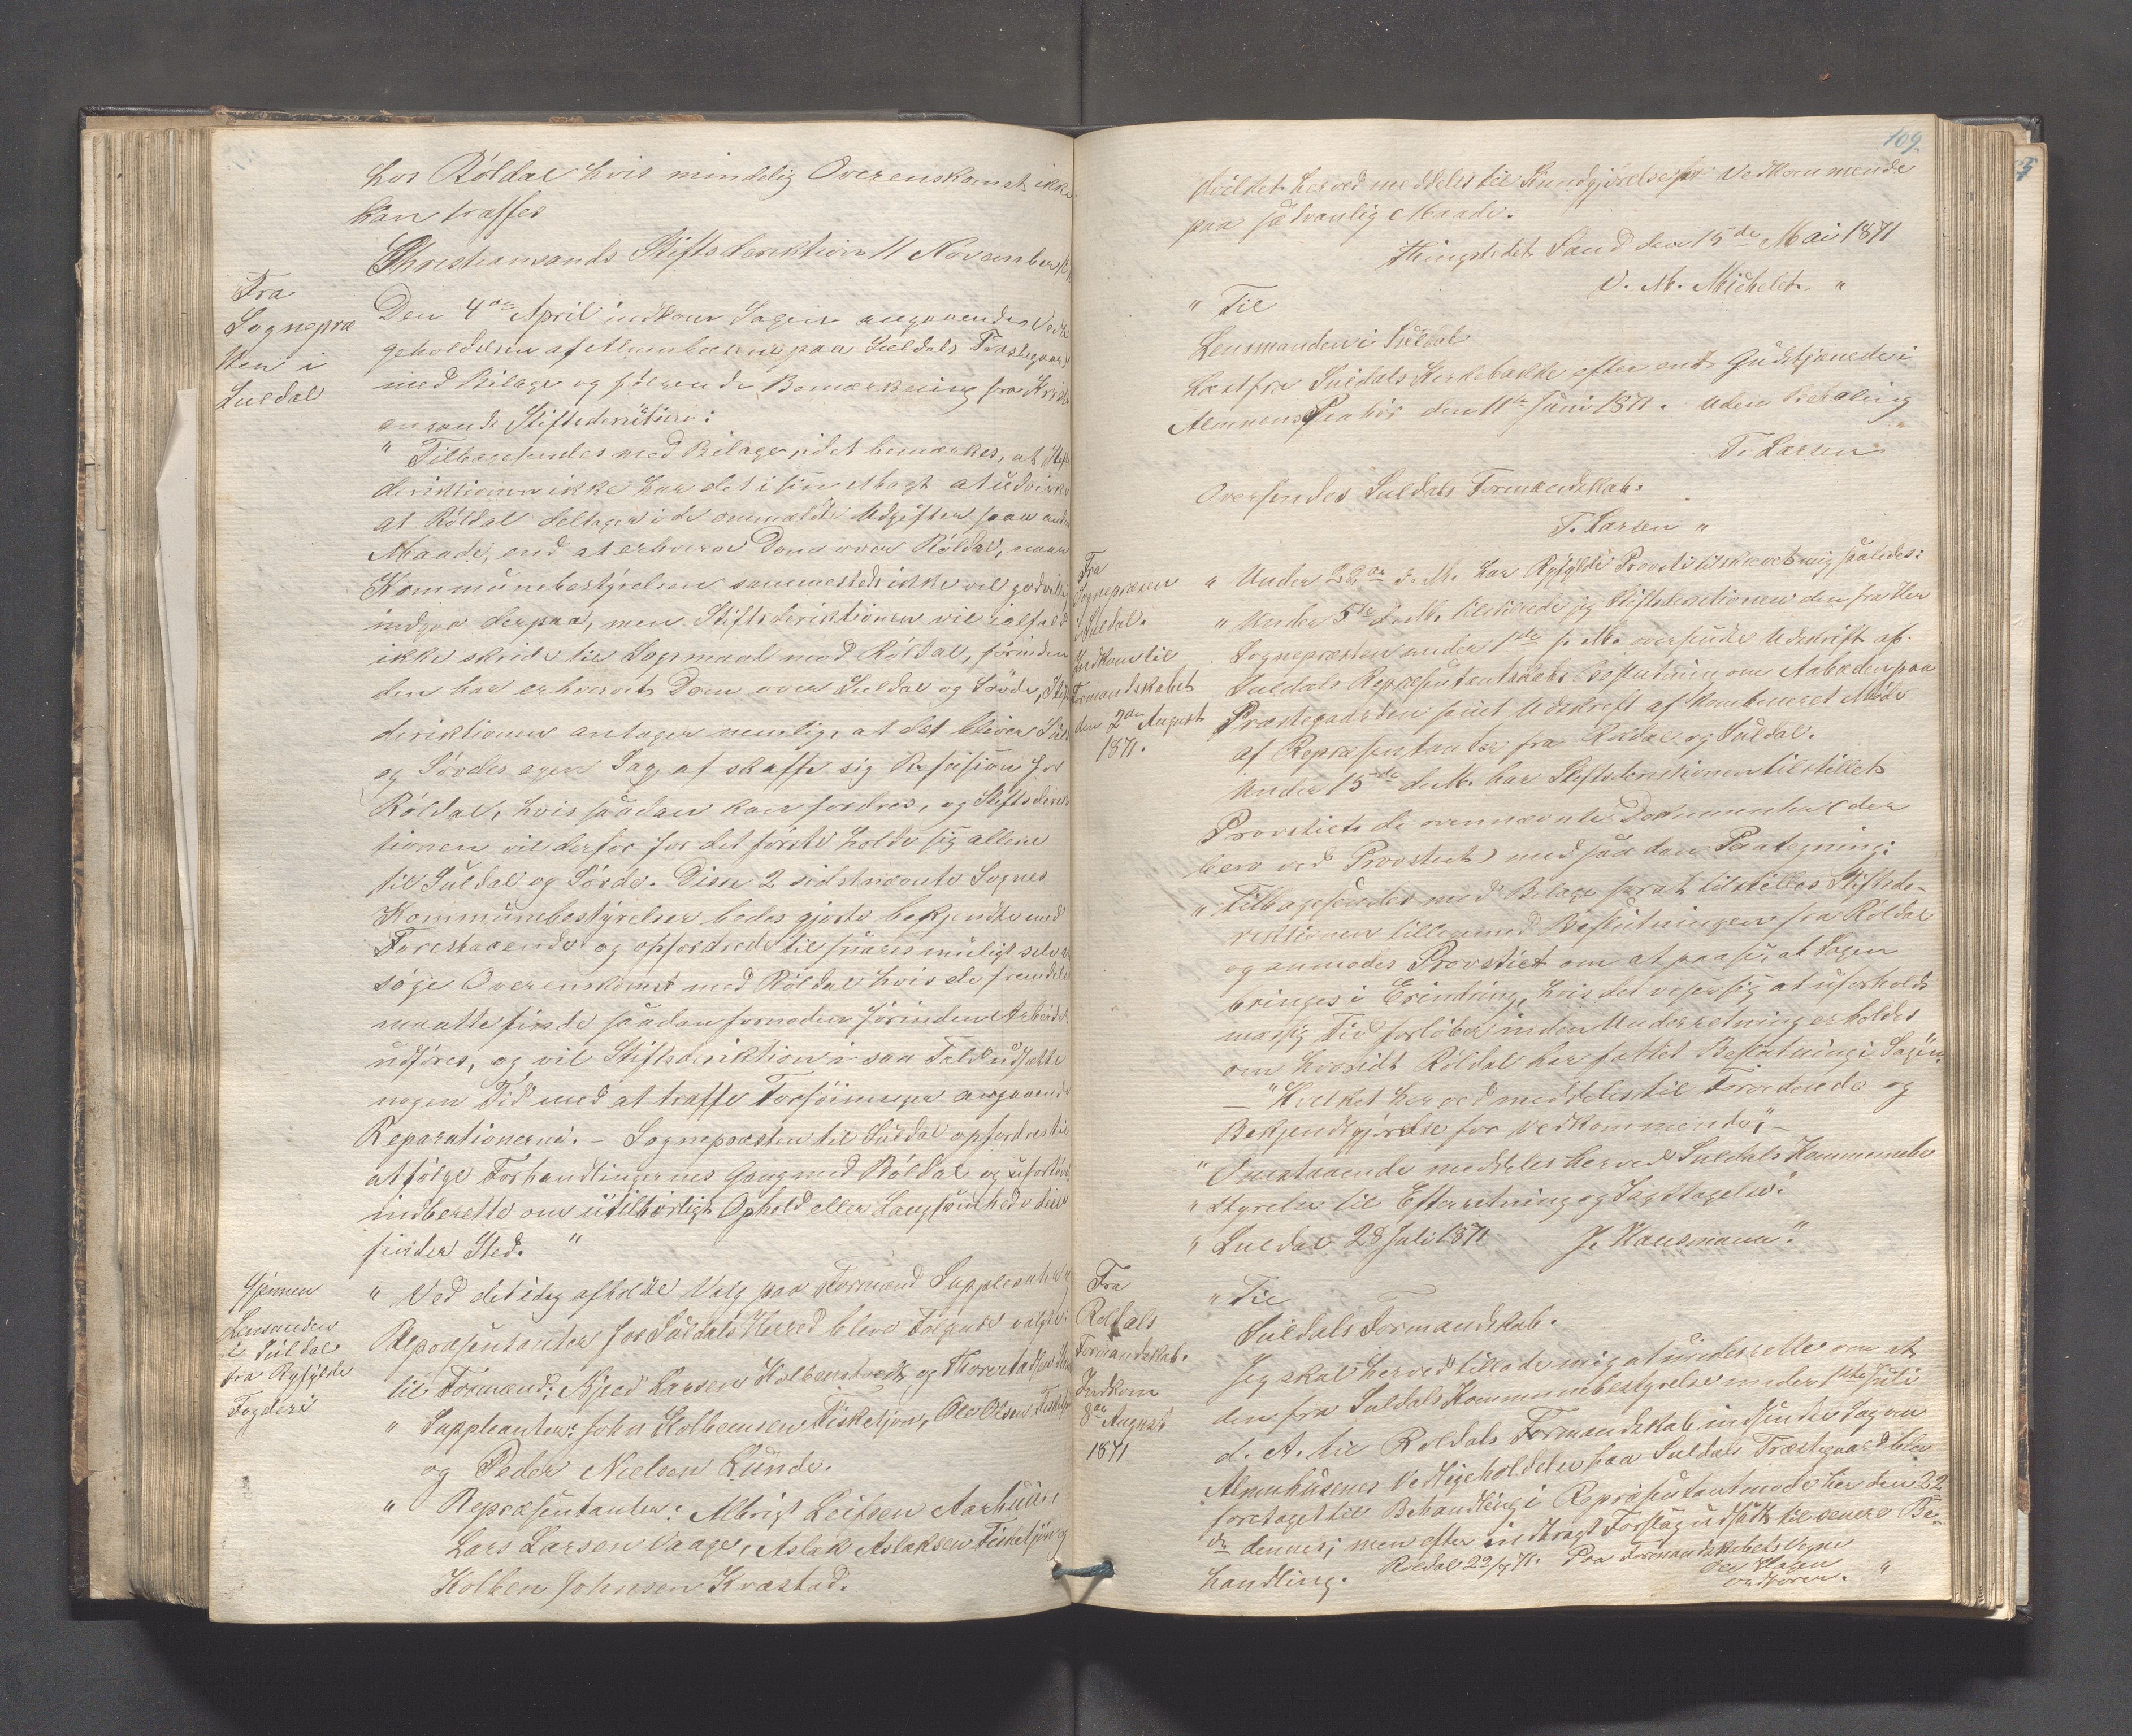 hos Röldal hvis mindelig Overenskomst ikke
kan træffes
Christiansands Stiftsdirektion 11 November
Fra
Sognepræ
sten i
Suldal
Den 4de April indkom Sagen angaaende Vedli
geholdelsen af Almuehusene paa Suldals Præstegaard
med Bilage og følgende Bemærkning fra Kristi
ansands Stiftsdirektion:
" Tilbagesendes med Bilage idet bemærkes, at Stifts
direktionen ikke har det i sin Magt at udvirke
at Röldal deltager i de ommeldte Udgifter paa anden
Maade, end at erhverve Dom over Röldal, naar
Kommunebestyrelsen sammesteds ikke vil godvillig
indgaa derpaa, men Stiftsdirektionen vil ialfald
ikke skride til Søgsmaal mod Röldal, førinden
den har erhvervet Dom over Suldal og Søvde, Stifts
direktionen antager nemlig, at det bliver Suldals
og Søvdes egen Sag at skaffe sig Refusion hos
Röldal, hvis saadan kan fordres, og Stiftsdirek
tionen vil derfor for det første holde sig allene
til Suldal og Søvde. Disse 2 sidstnævnte Sognes
Kommunebestyrelser bedes gjorte bekjendte med
Forestaaende og opfordrede til snarest muligt selv at
søge Overenskomst med Röldal hvis de fremdeles
maatte finde saadan fornøden førinden Arbeidet
udføres, og vil Stiftsdirektionen i saa Fald udsætte
nogen Tid med at træffe Forføininger angaaende
Reparationerne. – Sognepræsten til Suldal opfordres til
at følge Forhandlingernes Gang med Röldal og ufortøvet
indberette om utilbørligt Ophold eller Langsomhed dermed
finder Sted. "
Gjennem
Lensmanden
i Suldal
fra Ryfylke
Fogderi
" Ved det idag afholdte Valg paa Formænd Suppleanter og
Repræsentanter for Suldals Herred bleve Følgende valgte:
til Formænd: Njæd Larsen Kolbenstvedt og Thore
" Suppleanter: John Kolbensen Fisketjøn, Ole Olsen
og Peder Nielsen Lunde.
" Repræsentanter: Albrigt Leifsen Aarhuus,
Lars Larsen Vaage, Aslak Aslaksen Fisketjøn og
Kolben Johnsen Kvæstad.
109
Hvilket herved meddeles til Kundgjørelse for Vedkommende
paa sædvanlig Maade.
Thingstedet Sand den 15de Mai 1871
V. M. Michelet. "
" Til
Lensmanden i Suldal
Læst fra Suldals Kirkebakke efter endt Gudstjeneste i
Almuens Paahør den 11te Juni 1871. Uden Betaling
T. Larsen
Oversendes Suldals Formandskab.
T. Larsen "
Fra
Sognepræsten
i Suldal.
Indkom til
Formandskabet
den 2den August
1871.
" Under 22de d. M. har Ryfylke Provsti tilskrevet mig saaledes:
" Under 5te d. M. tilstillede jeg Stiftsdirektionen den fra Her
Sognepræsten under 1ste s. M. oversendte Udskrift af
Suldals Repræsentantskabs Beslutning om Aaboden paa
Præstegaarden samt Udskrift af kombineret Møde
af Repræsentanter fra Röldal og Suldal.
Under 15de d. M. har Stiftsdirektionen tilstillet
Provstiet de ovennævnte Dokumenter (der
bero ved Provstiet) med saadan Paategning:
" Tilbagesendes med Bilage for at tilstilles Stiftsdi-
rektionen tilligemed Beslutningen fra Röldal
og anmodes Provstiet om at paase, at Sagen
bringes i Erindring, hvis det viser sig at uforholds
mæssig Tid forløber inden Underretning erholdes
om hvorvidt Röldal har fattet Beslutning i Sagen.
– "Hvilket herved meddeles til Foreløbede og
Bekjendtgjørelse for Vedkommende"; –
" Ovenstaaende meddeles herved Suldals Kommunebe
" styrelse til Efterretning og Iagttagelse.
" Suldal 28 Juli 1871 J. Hansmann."
Fra
Röldals
Formandskab.
Indkom
8de August
1871
" Til
Suldals Formandskab.
Jeg skal herved tillade mig at underrette om at
den fra Suldals Kommunebestyrelse under 1ste Juli
d. A. til Röldals Formandskab indsendte Sag om
Almuehusenes Vedligeholdelse paa Suldals Præstegaard blev
foretaget til Behandling i Repræsentantmøde her den 22
de dennes; men efter indbragt Forslag udsat til senere Be-
handling. Röldal 22/7 71. Paa Formandskabets Vegne
Ordfører. "